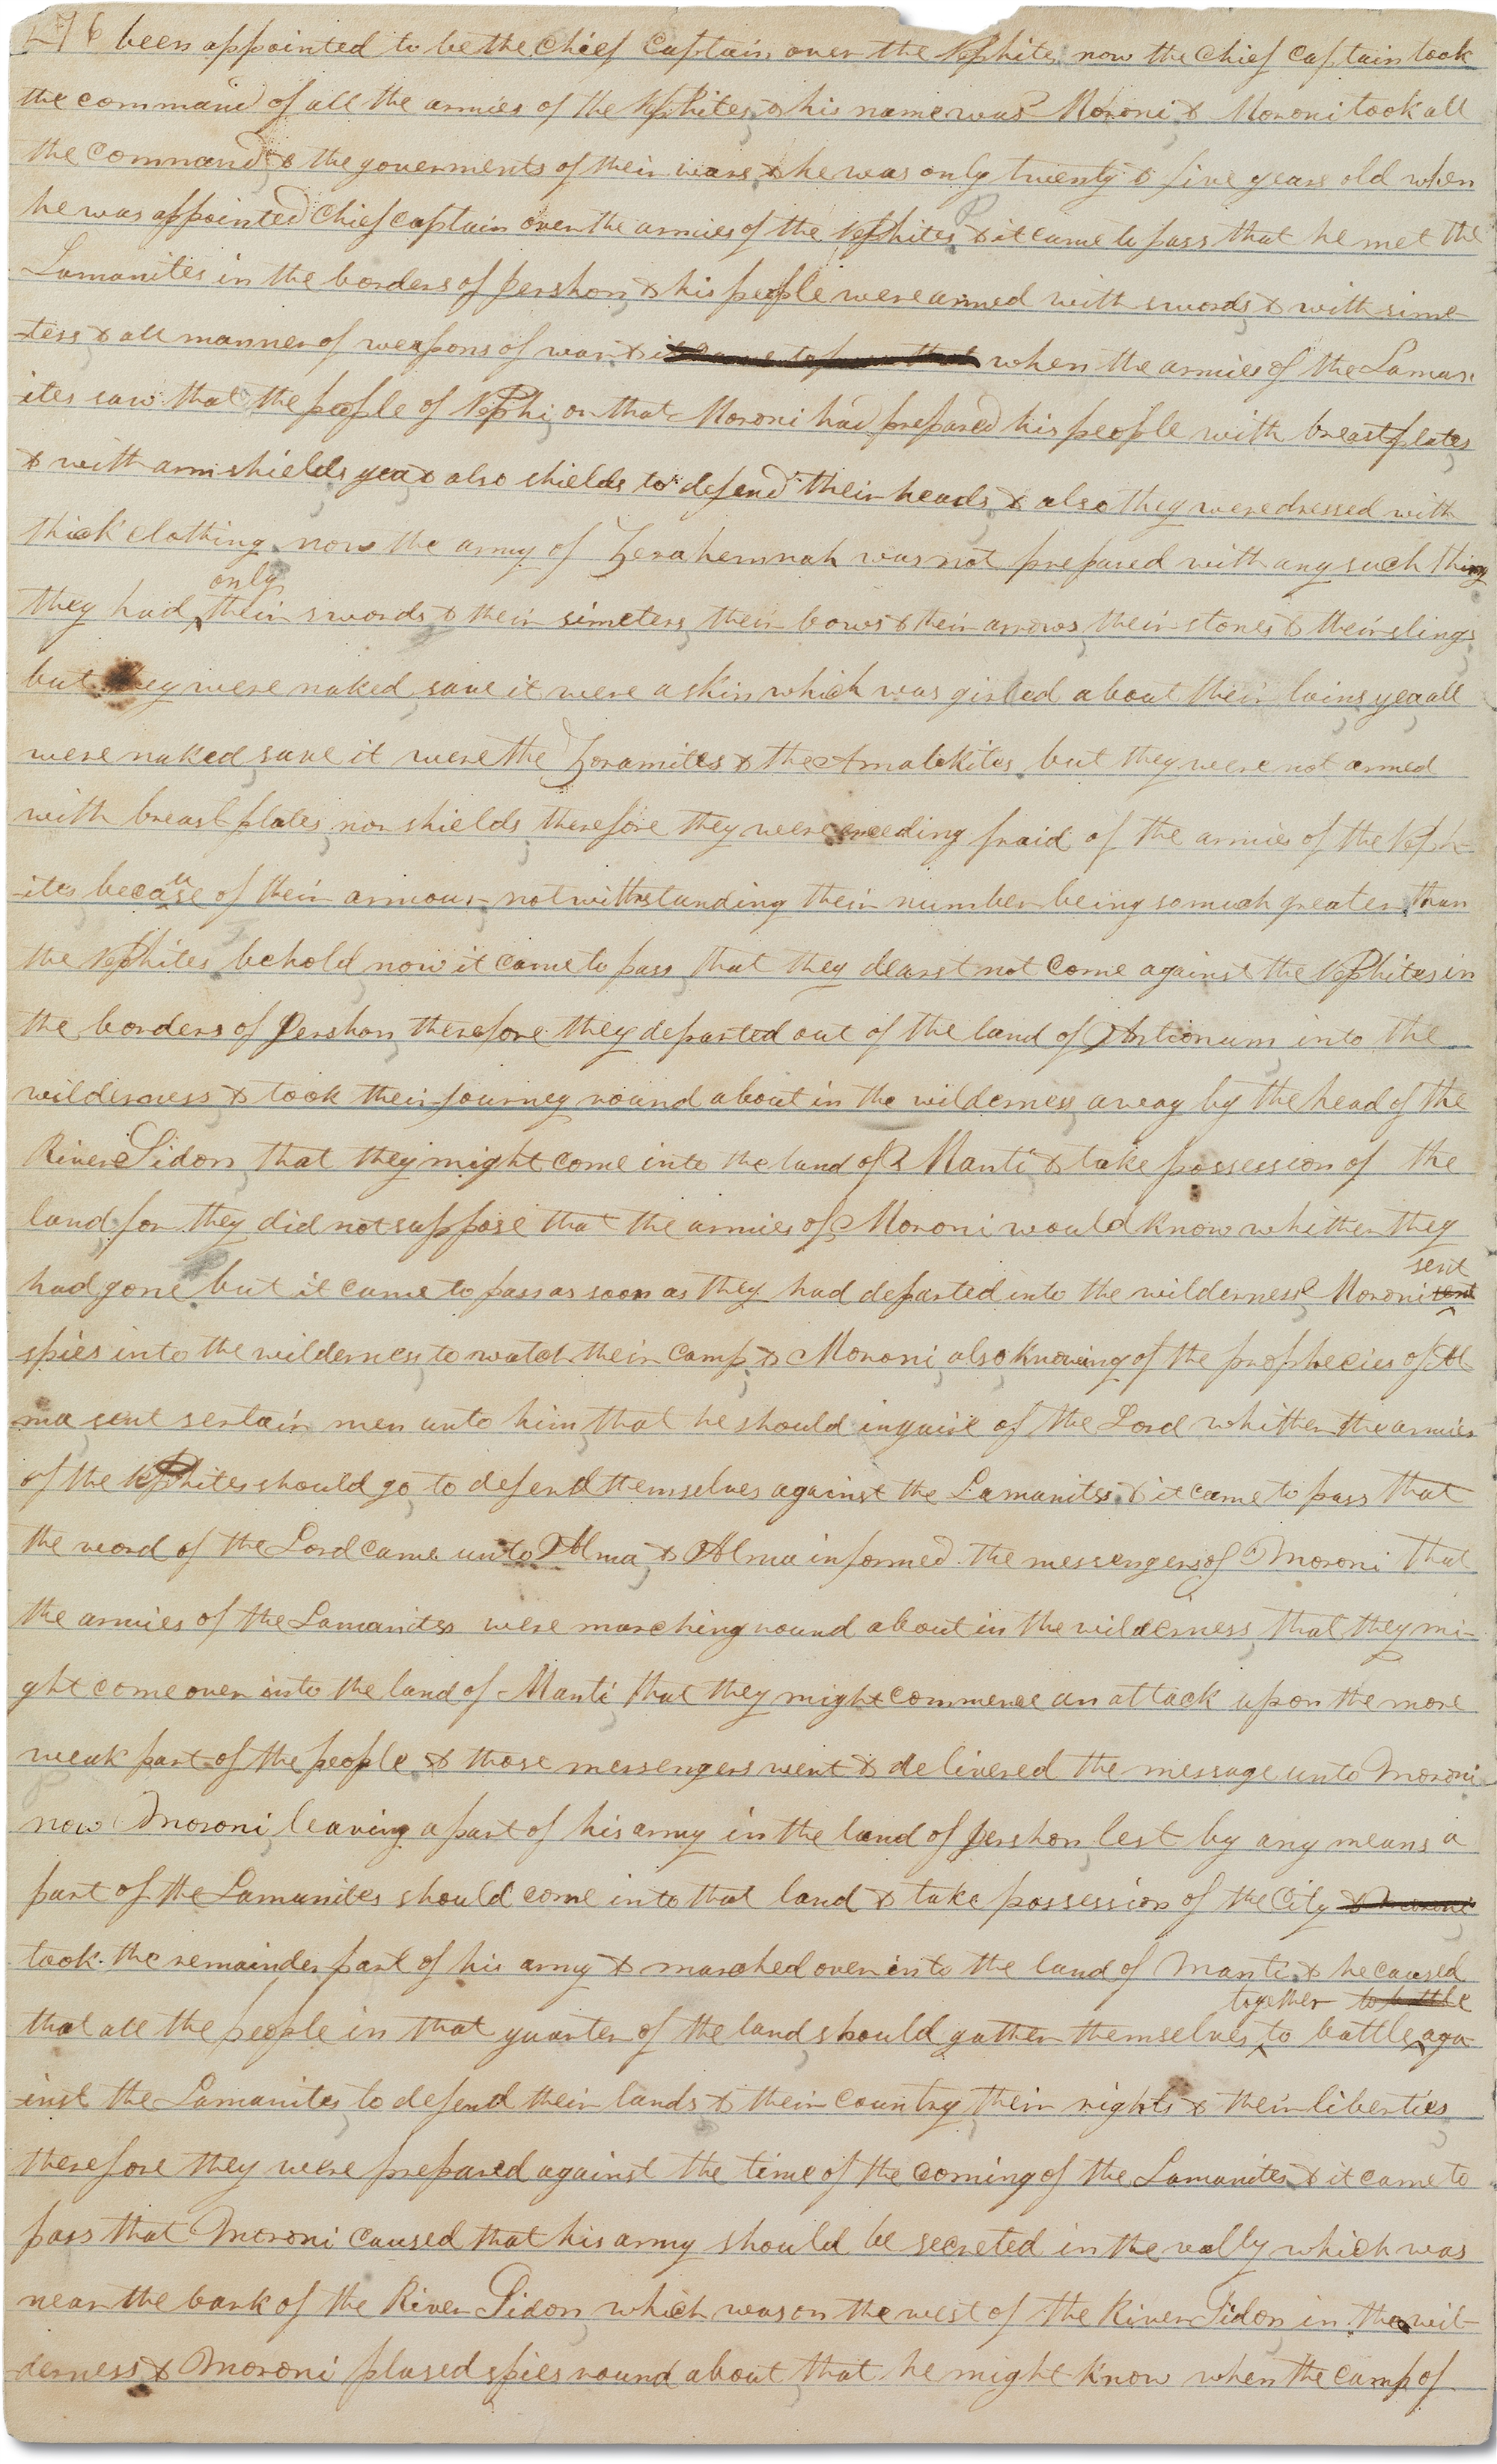 276 been appointed to be the chief captain over the Nephites now the chief captain took
the command of all the armies of the Nephites & his name was Moroni & Moroni took all
the command & the goverments of their wars & he was only twenty & five years old when
he was appointed chief captain over the armies of the Nephites & it came to pass that he met the
Lamanites in the borders of Jershon & his people were armed with swords & with sime
-ters & all manner of weapons of war & it came to pass that when the armies of the Laman
ites saw that the people of Nephi or that Moroni had prepared his people with breastplates
& with arm shields yea & also shields to defend their heads & also they were dressed with
thick clothing now the army of Zerahemnah was not prepared with any such thing
only
they had their swords & their simeters their bows & their arrows their stones & their slings
but they were naked save it were a skin which was girded about their loins yea all
were naked save it were the Zoramites & the Amalekites but they were not armed
with breast plates nor shields therefore they were exceeding fraid of the armies of the Neph
-ites because of their armour notwithstanding their number being so much greater than
the Nephites behold now it came to pass that they dearst not come against the Nephites in
the borders of Jershon therefore they departed out of the land of Antionum into the
wilderness & took their journey round about in the wilderness away by the head of the
River Sidon that they might come into the land of Manti & take possession of the
land for they did not suppose that the armies of Moroni would know whither they
sent
had gone but it came to pass as soon as they had departed into the wilderness Moroni
spies into the wilderness to watch their camp & Moroni also knowing of the prophecies of Al
ma sent sertain men unto him that he should inquire of the Lord whither the armies
of the Nephites should go to defend themselves against the Lamanites & it came to pass that
the word of the Lord came unto Alma & Alma informed the messengers of Moroni that
the armies of the Lamanites were marching round about in the wilderness that they mi-
ght come over into the land of Manti that they might commence an attack upon the more
weak part of the people & those messengers went & delivered the message unto Moroni
now Moroni leaving a part of his army in the land of Jershon lest by any means a
part of the Lamanites should come into that land & take possession of the City & Moroni
took the remainder part of his army & marched over into the land of Manti & he caused
together to battle
that all the people in that quarter of the land should gather themselves to battle aga
-inst the Lamanites to defend their lands & their country their rights & their liberties
therefore they were prepared against the time of the coming of the Lamanites & it came to
pass that Moroni caused that his army should be secreted in the vally which was
near the bank of the River Sidon which was on the west of the River Sidon in the wil-
derness & Moroni plased spies round about that he might know when the camp of